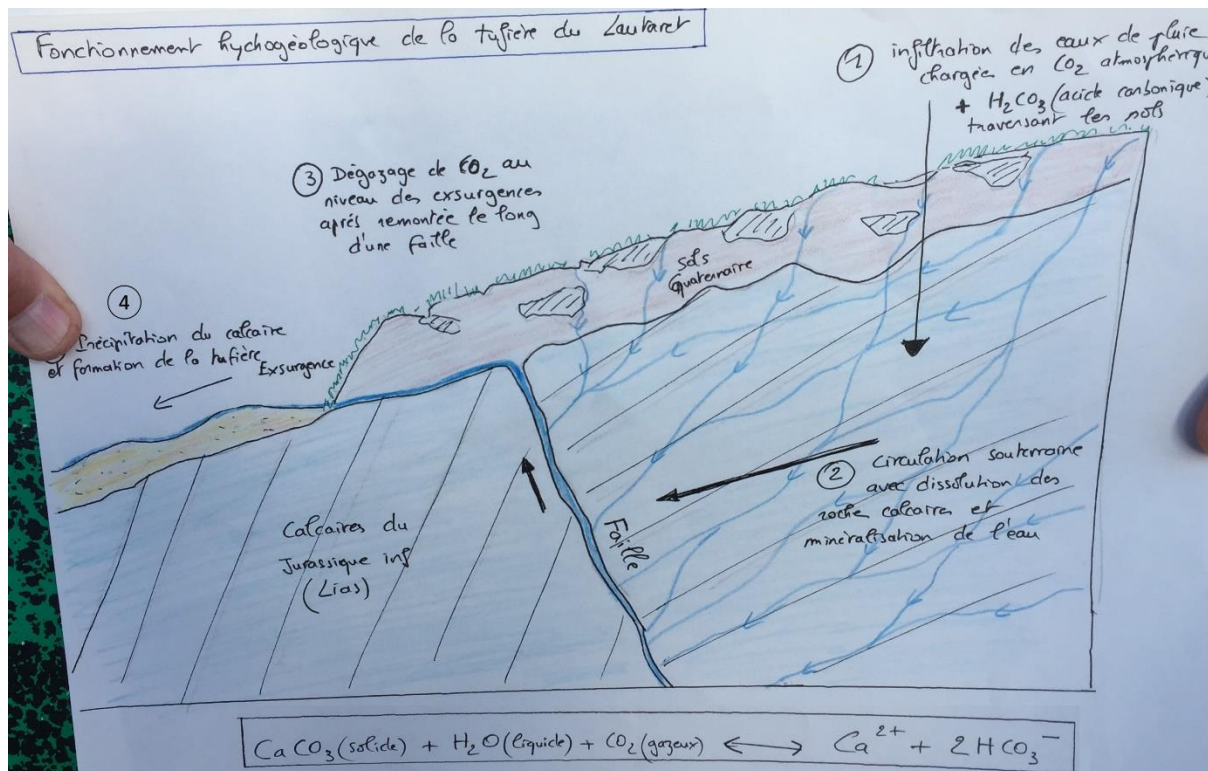 Fonctionnement hychogéologique de la tufière du Lautaret
1 infiltration des eaux de pluie
chargée en CO2 atmosphérique
+ H2CO3 (acide carbonique)
traversant les sols
3 Dégazage de CO2 au
niveau des exsurgences
aprés remontée le long
d'une faille
sols
Quaternaire
4
Précipitation du calcaire
et formation de la tufière
Exsurgence
2 Circulation souterraine
avec dissolution des
roche calcaires et
minéralisation de l'eau
Faille
Calcaires du
Jurassique inf
(Lias)
CaCO3 (solide) + H2O (liquide) + CO2 (gazeux) ⟷ Ca2+ + 2HCO3-